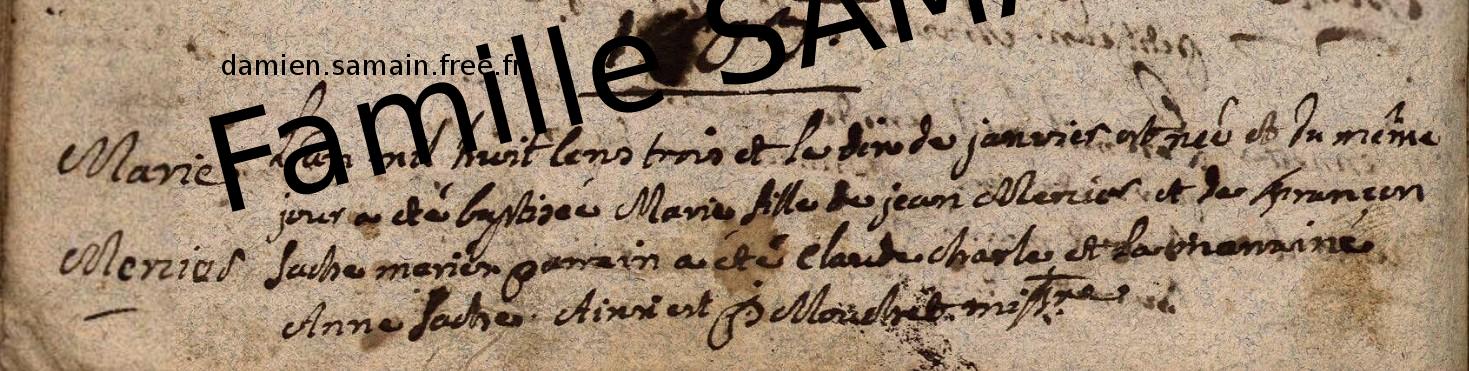 damien.samain.free.fr
Famille SAMA
Marie L'an mil huit cens trois et le dix de janvier est née et du même
jour a été baptisée Marie fille de jean Mercier et de françon
Mercier sache mariés parrain a été Claude charle et la marrine
Anne sache. Ainsi est